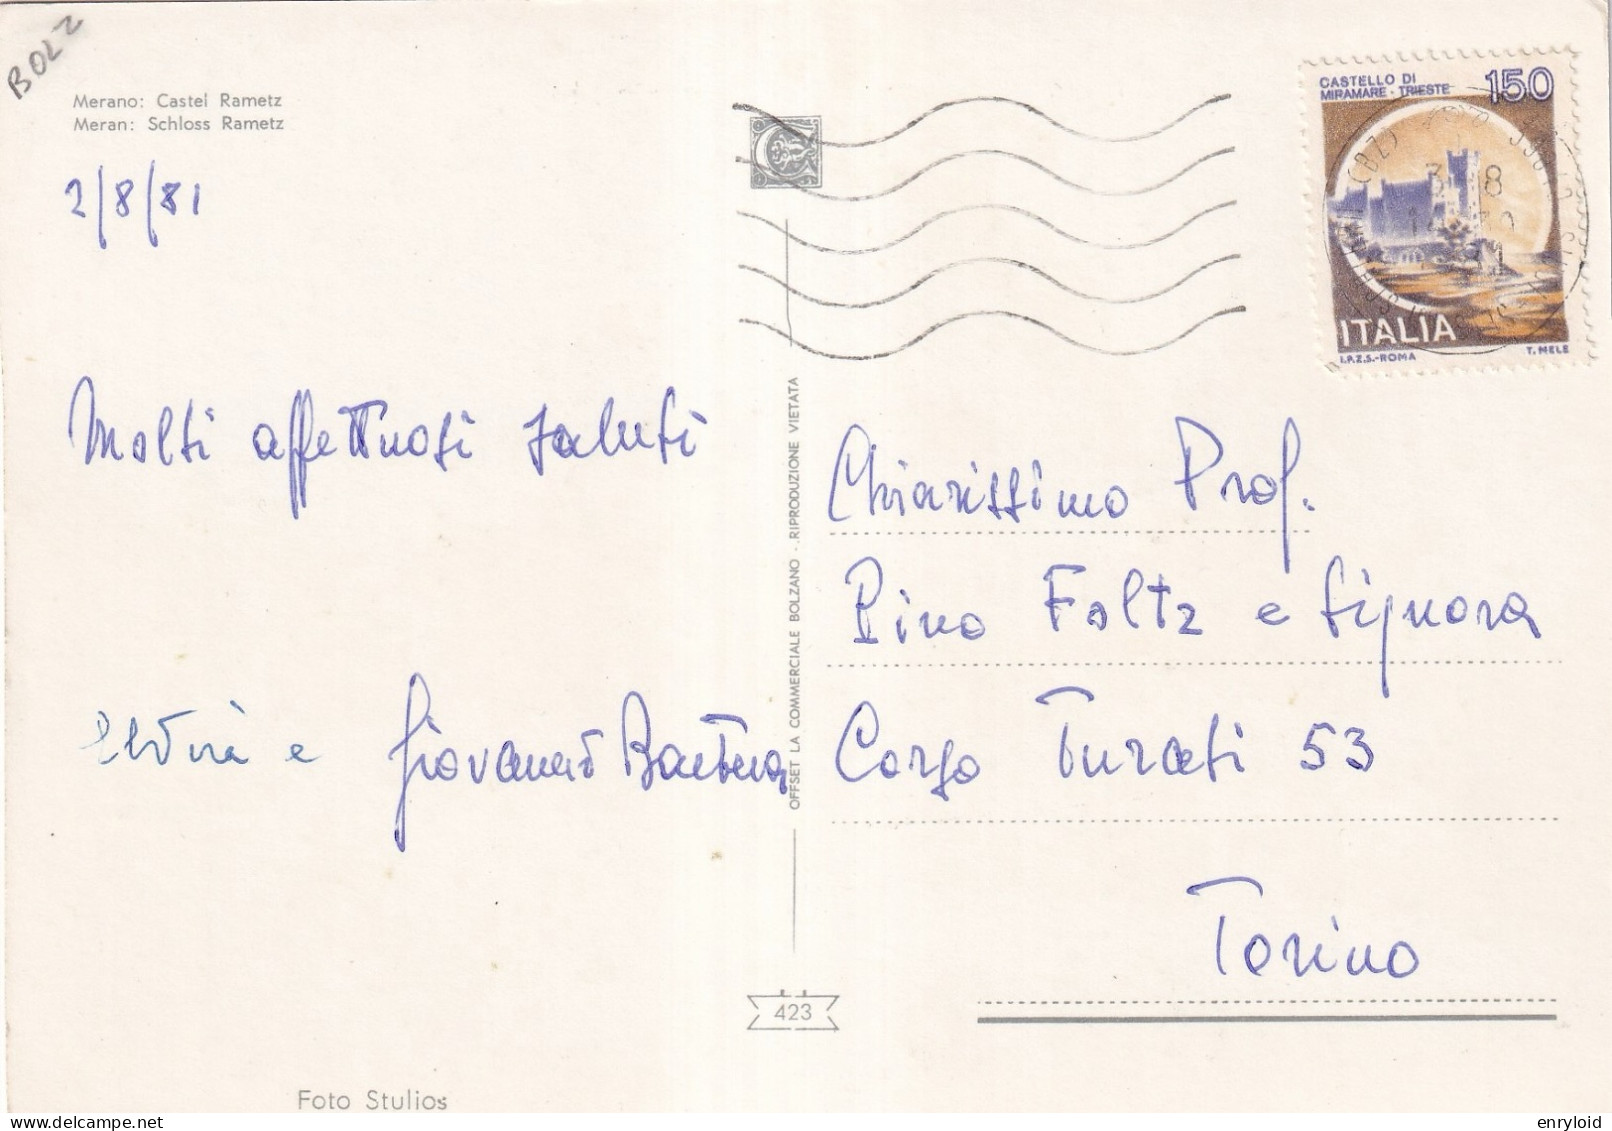 BOLZ
Merano: Castel Rametz
Meran: Schloss Rametz
2/8/81
Molti affettuosi saluti
Elvira e Giovanni
OFFSET LA COMMERCIALE BOLZANO - RIPRODUZIONE VIETATA
423
Foto Stulios
CASTELLO DI
MIRAMARE - TRIESTE
150
(BZ)
ITALIA
I.P.Z.S.-ROMA
T. MELE
Chiarissimo Prof.
Pino Foltz e Signora
Corso Turati 53
Torino
enryloid